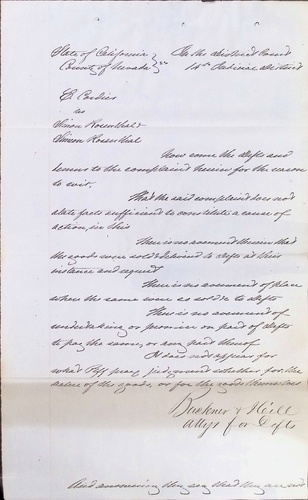 State of California } In the District Court
County of Nevada } ss 14th Judicial District
E. Cordier
vs
Simon Rosenthal &
Simon Rosenthal
Now come the defts and
demur to the complaint herein for the reason
to wit.
That the said complaint does not
state facts sufficient to constitute a cause of
action, in this
There is no averment therein that
the goods were sold & delivered to defts at their
instance and request
There is no averment of place
when the same were so sold to defts
There is no averment of
undertaking or promise on part of defts
to pay the same, or any part thereof
Does not appear for
what Plff pray judgment whether for the
value of the goods, or for the goods themselves
Buckner & Hill
Attys for Defts
And answering they say that they are not